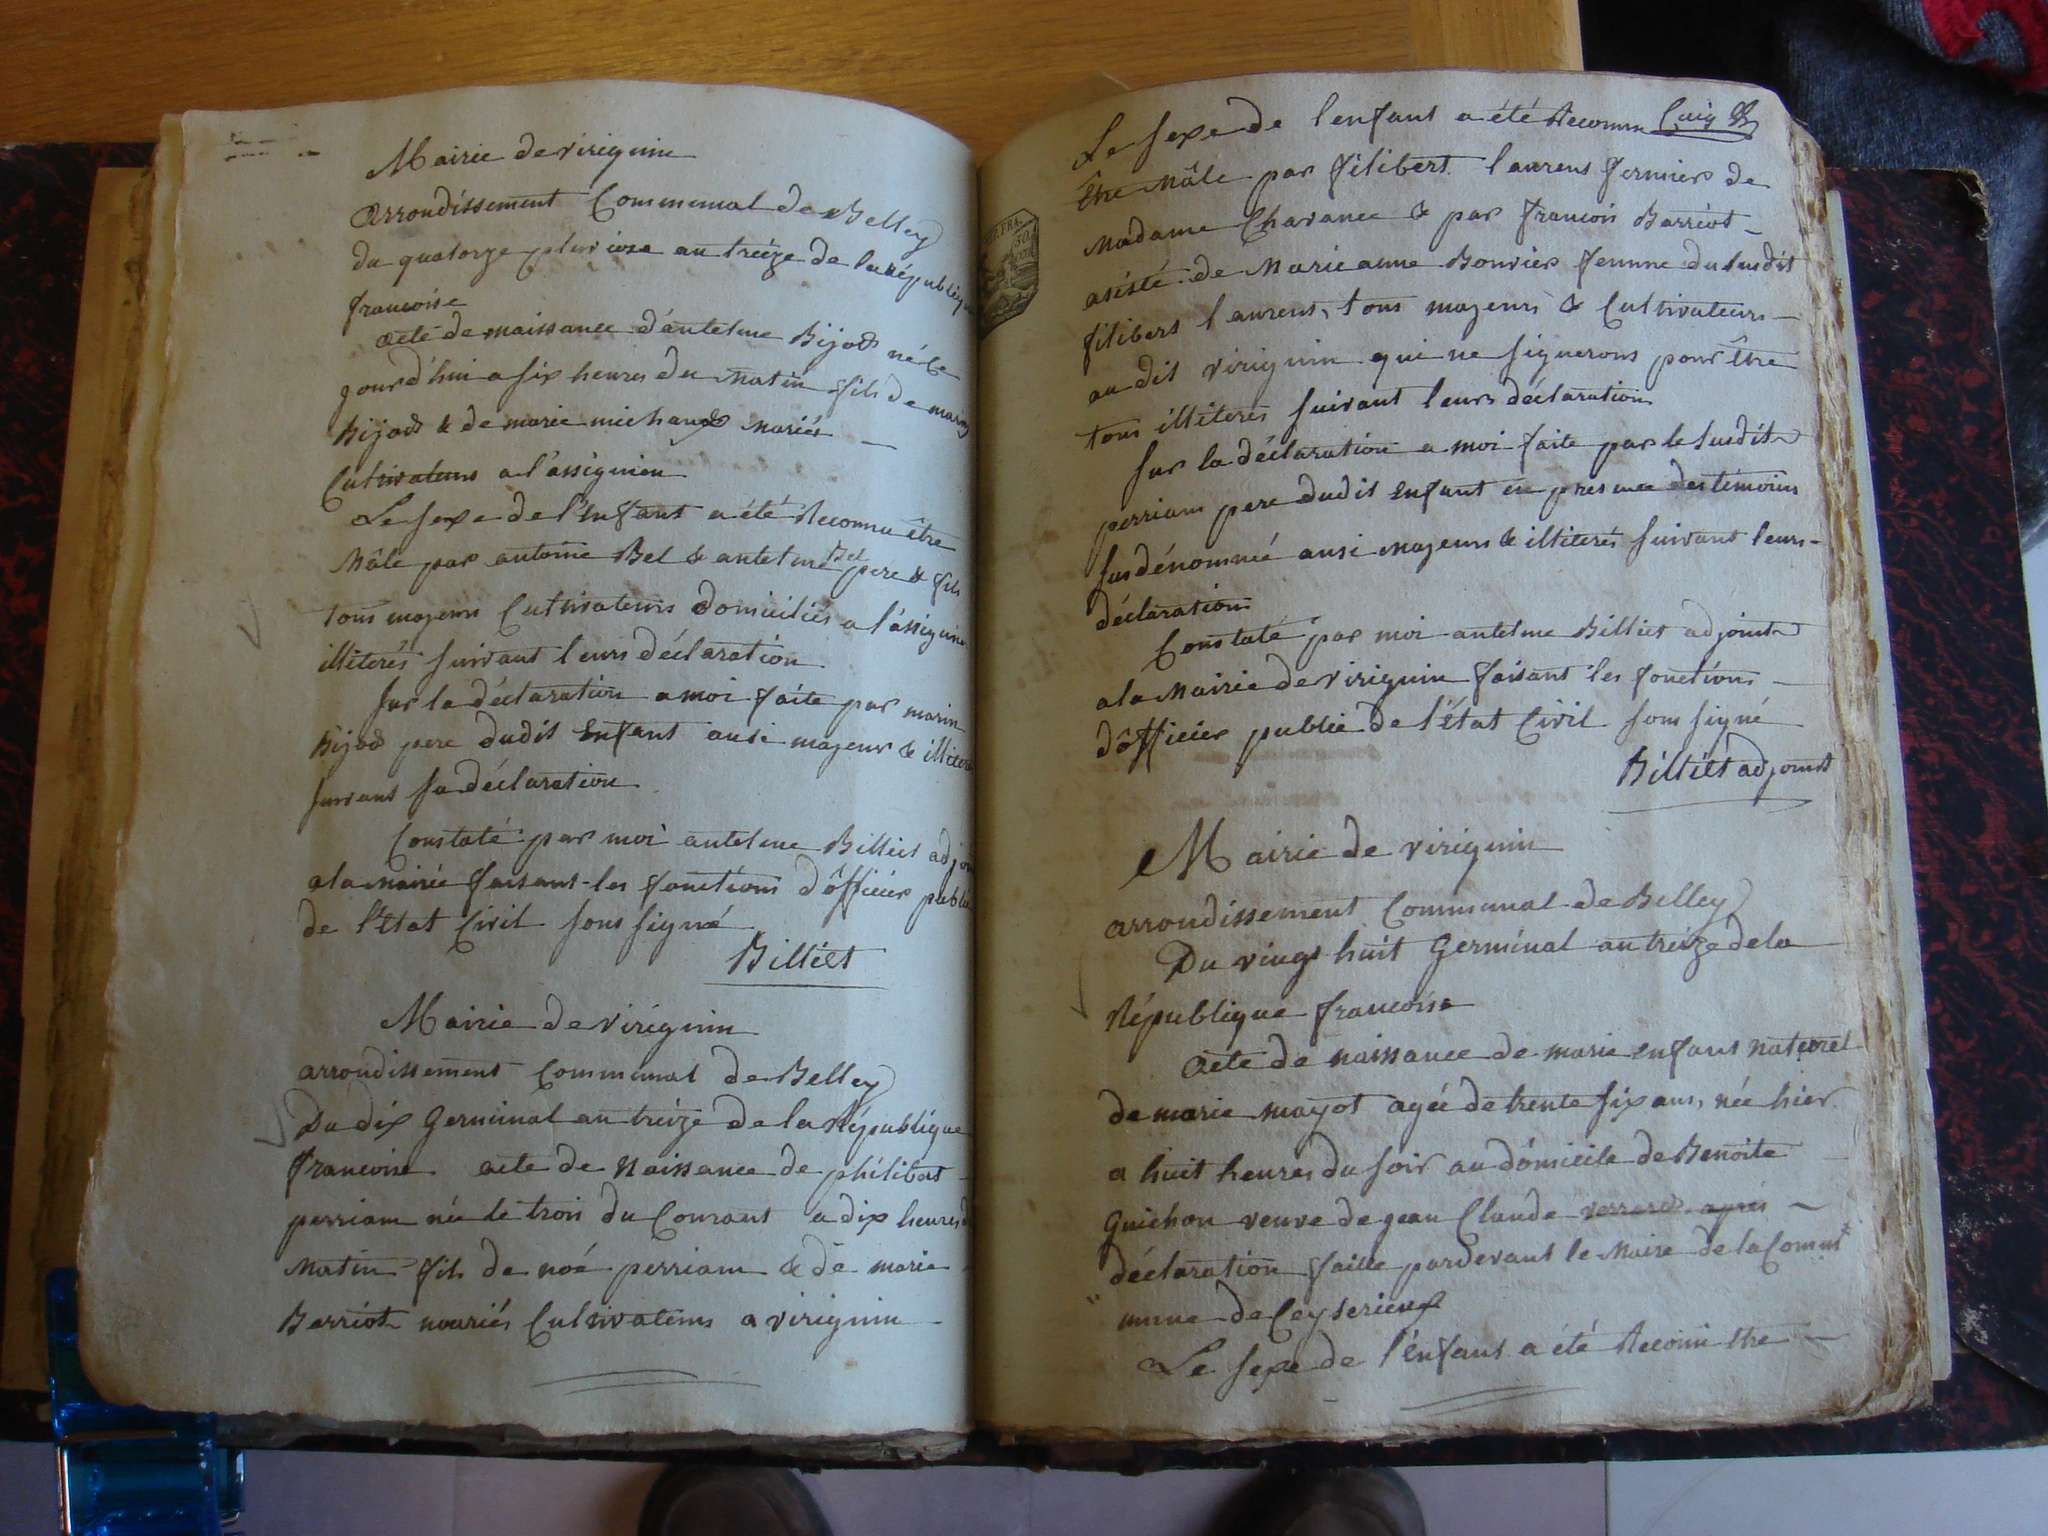 Mairie de virignin
arrondissement Communal de Belley
du quatorze pluviose an treize de la république
francoise
acte de naissance d'antelme Bijod né le
jourd'hui a six heures du matin fils de marin
Bijod & de marie michaud mariés
Cultivateurs a l'assignieu
Le sexe de l'enfant a été Reconnu être
Mâle par antoine Bel & antelme Bel pere & fils
tous majeurs Cultivateurs domiciliés a l'assignieu
illiterés suivant leurs déclaration
Sur la déclaration a moi faite par marin
Bijod pere dudit enfant ausi majeur & illiteré
suivant sa déclaration
Constaté par moi antelme Billiet adjoin
a la Mairie faisant les fonctions d'ôfficier public
de l'état Civil sous signé
Billiet
Mairie de virignin
arrondissement Communal de Belley
Du dix Germinal an treize de la République
francoise acte de Naissance de philibert
perriam née le trois du Courant a dix heures d
Matin fils de noé perriam & de marie
Barriot mariés Cultivateurs a virignin
Le sexe de l'enfant a été Reconnu
être Mâle par filibert laurent fermier de
Madame Chavanee & par francois Barriot
asisté de Marieanne Bouvier femme du susdit
filibert laurent, tous majeurs & Cultivateurs
au dit virignin qui ne signerons pour être
tous illiterés suivant leurs déclaration
Sur la déclaration a moi faite par le susdit
perriam pere dudit enfant en presence des témoins
susdénommé ausi majeurs & illiterés suivant leurs
déclaration
Constaté par moi antelme Billiet adjoint
a la Mairie de virignin faisant les fonctions
d'ôfficier public de l'état Civil sous signé
Billiet adjoint
Mairie de virignin
arrondissement Communal de Belley
Du vingt huit Germinal an treize de la
République francoise
acte de naissance de marie enfant naturel
de marie mayot agée de trente six ans, née hier
a huit heures du soir au dómicile de Benoite
Guichon veuve de jean Claude verrard après
déclaration faite pardevant le Maire de la Com
mune de Ceyserieux
Le sexe de l'énfant a été Reconu être